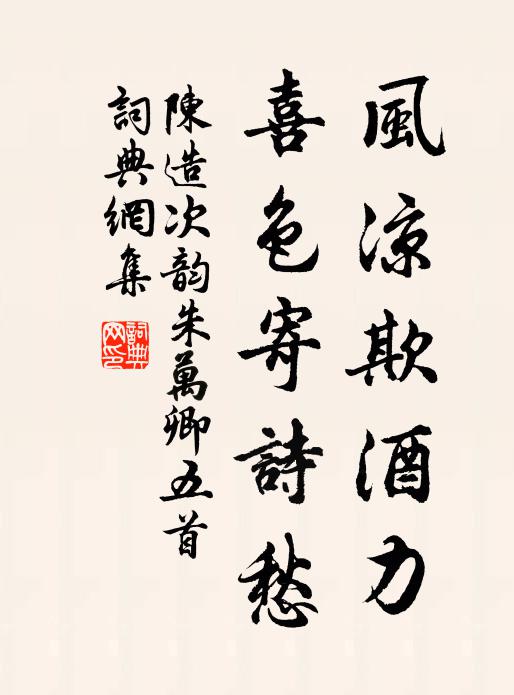 風涼欺酒力
喜色寄詩愁
陳造次韵朱萬卿五首
詞典網集
詞典网印